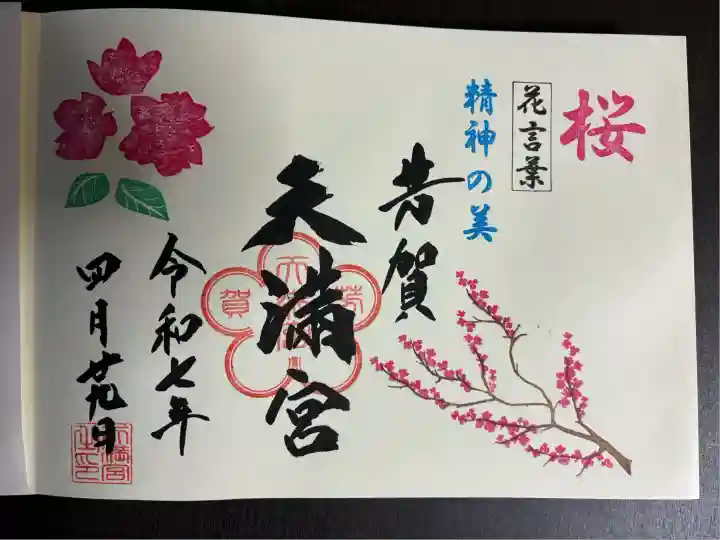 桜
花言葉
精神の美
芳賀
天満宮
令和七年
四月廿九日
天満宮
之印